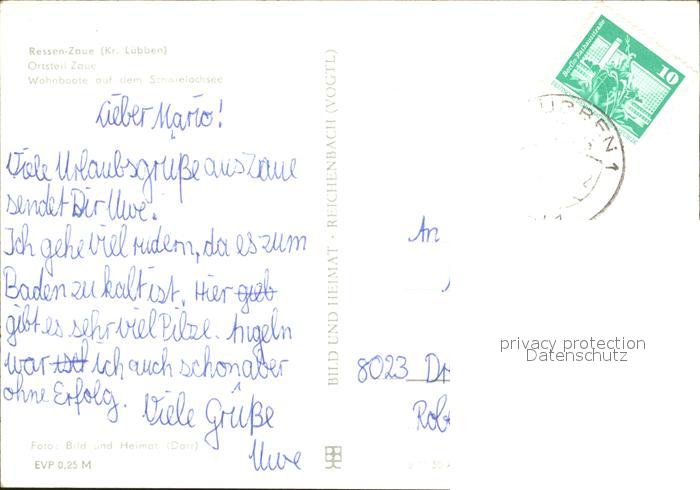 Ressen-Zaue (Kr. Lübben)
Ortsteil Zaue
Wohnboote auf dem Schwielochsee
Lieber Mario!
Viele Urlaubsgrüße aus Zaue
sendet Dir Uwe.
Ich gehe viel rudern, da es zum
Baden zu kalt ist. Hier gieb
gibt es sehr viel Pilze. Angeln
war ich auch schon aber
ohne Erfolg. Viele Grüße
Uwe
Foto: Bild und Heimat (Darr)
EVP 0,25 M
BILD UND HEIMAT · REICHENBACH (VOGTL)
Berlin, Rathausstraße
10
LÜBBEN 1
An
8023 Dr
Rob
privacy protection
Datenschutz